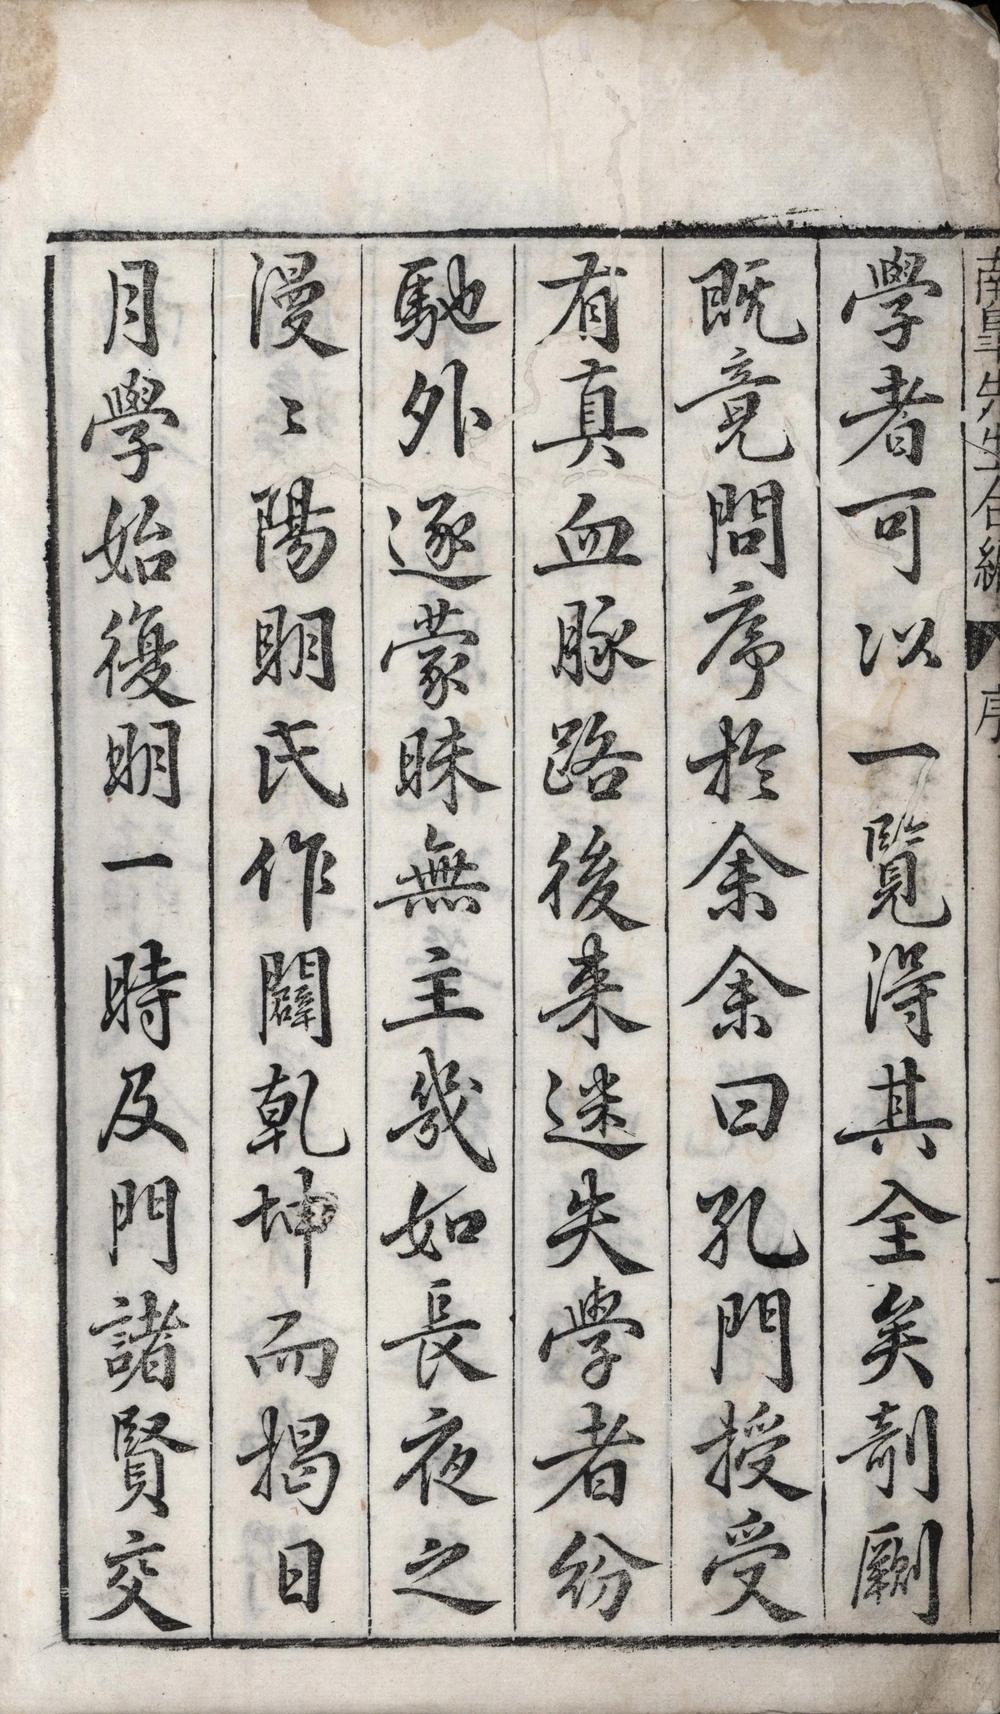 南皐先生合編 序 一
學者可以一覽淂其全矣剞劂
既竟問序扵余余曰孔門授受
有真血脉路後来迷失學者紛
馳外逐蒙昧無主幾如長夜之
漫〻陽眀氏作闢乾坤而揭日
月學始復眀一時及門諸賢交